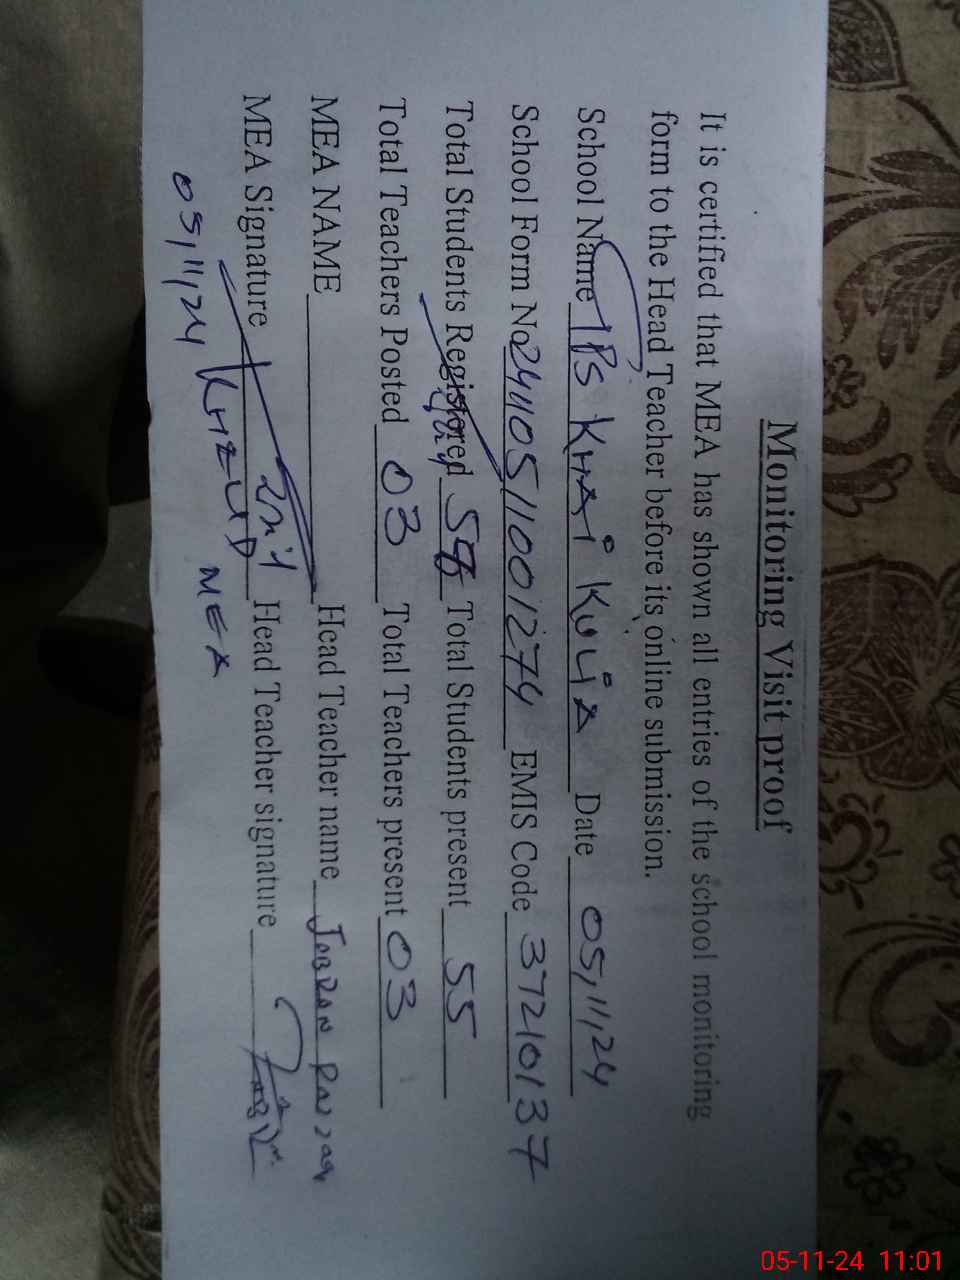 Monitoring Visit proof
It is certified that MEA has shown all entries of the school monitoring
form to the Head Teacher before its online submission.
School Name KHAi KuLiA Date 05,11,24
School Form No 24110511001274 EMIS Code 37210137
Total Students Registered Total Students present 55
Total Teachers Posted 03 Total Teachers present 03
MEA NAME Head Teacher name
MEA Signature Head Teacher signature
05,11,24 MEA
05-11-24 11:01